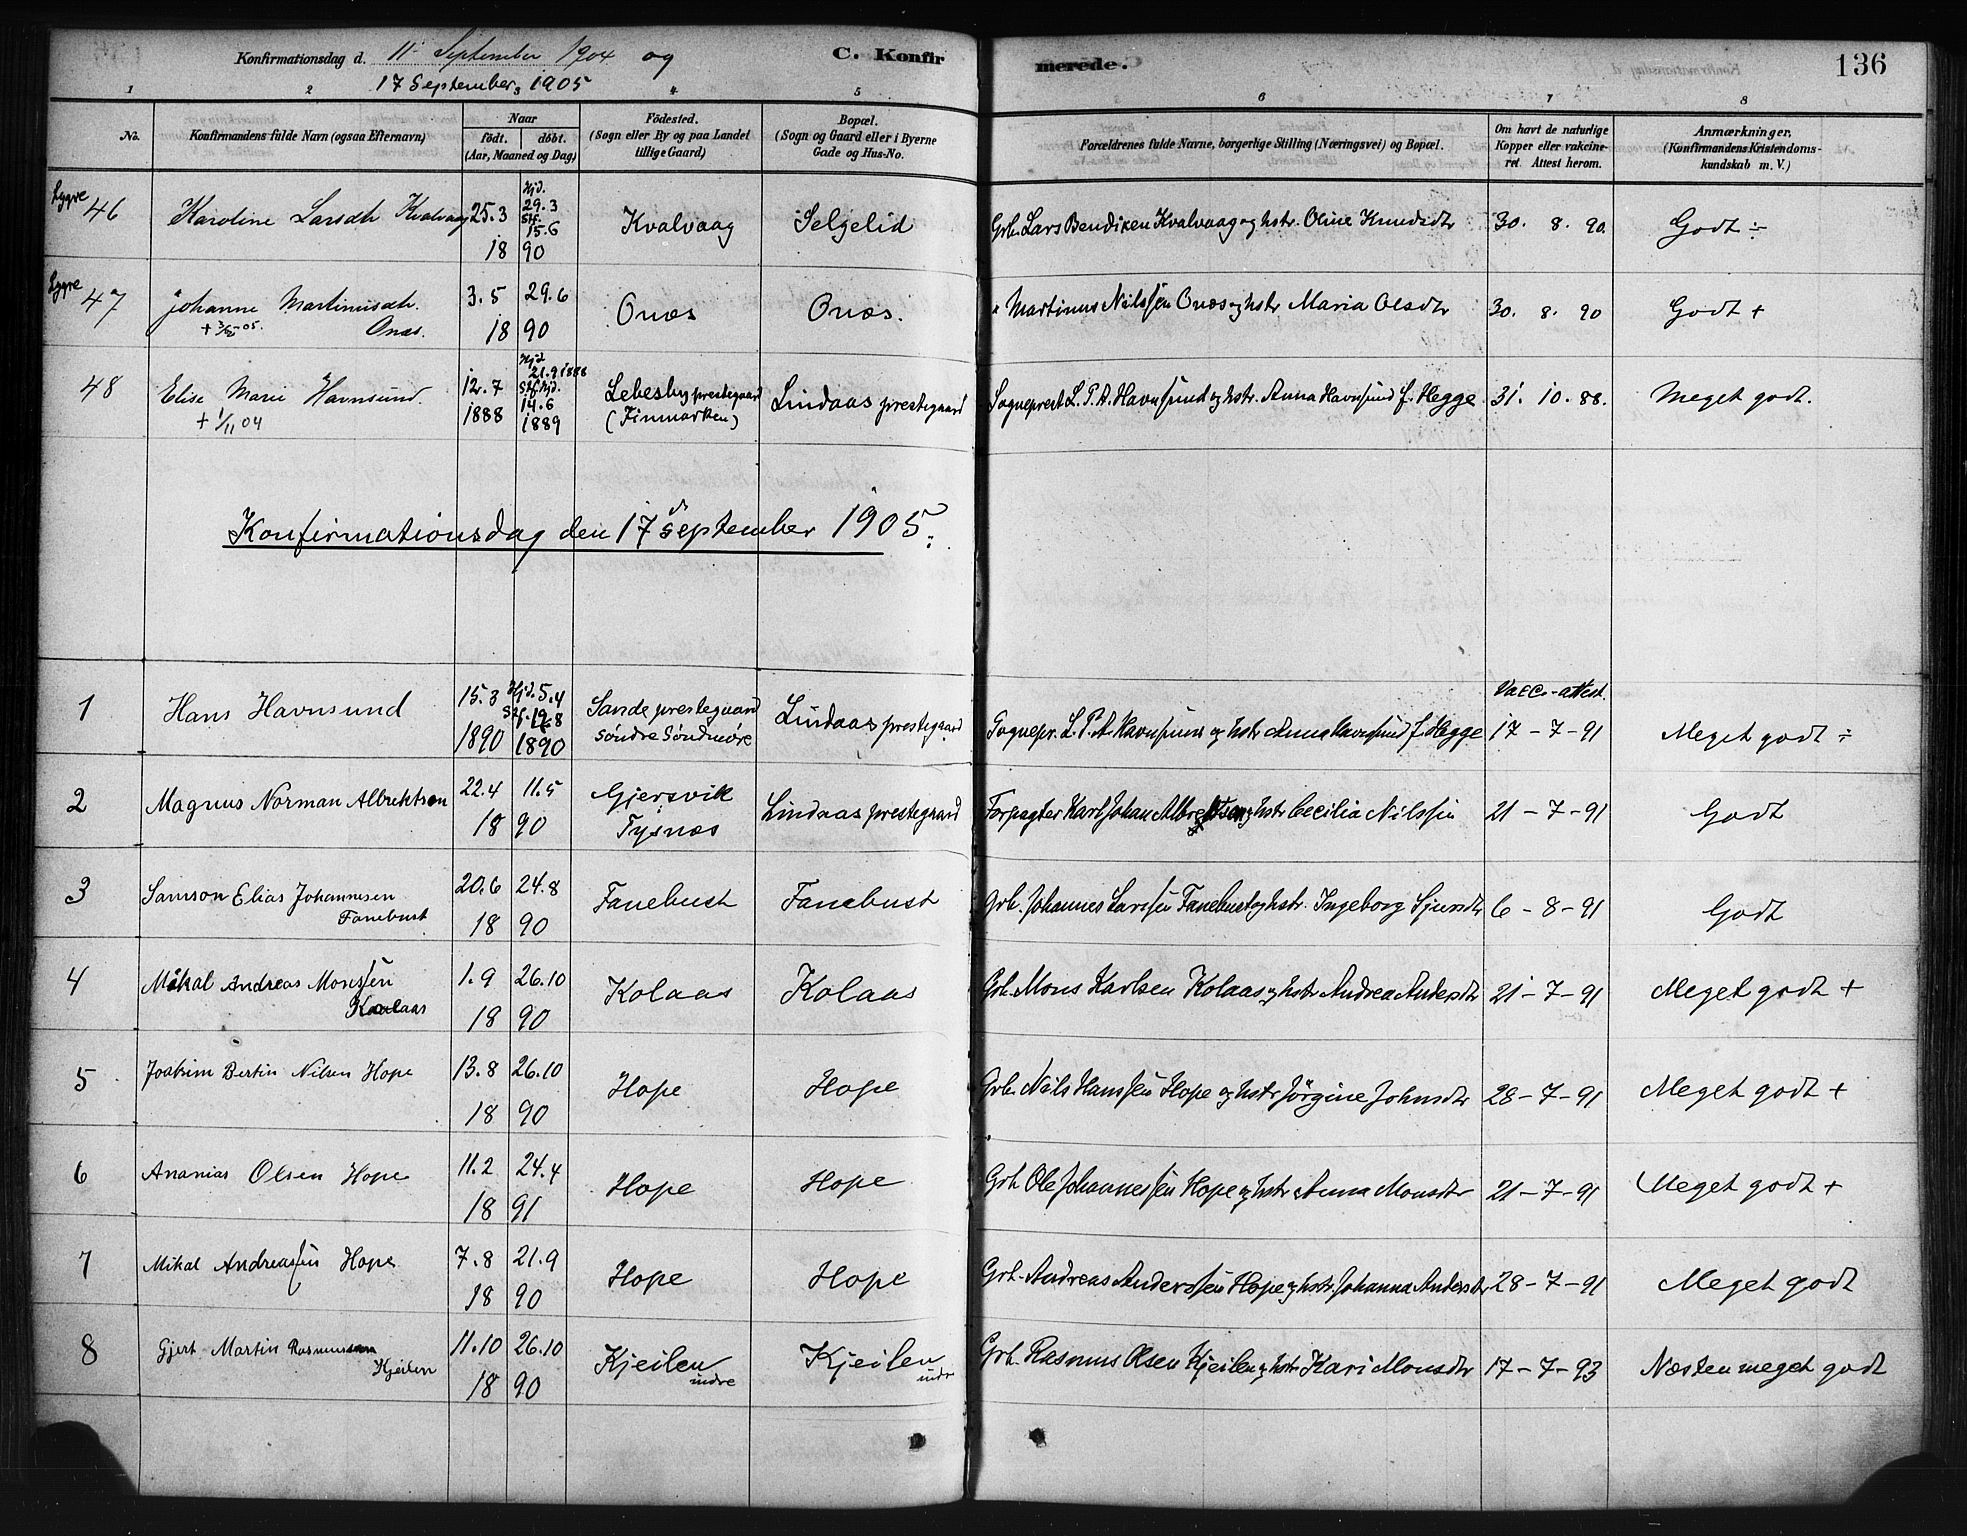 Konfirmationsdag d. 11 September 1904 og
17 September 1905
C. Konfirmerede.
136
1 2 3 4 5 5 6 7 8
No. Konfirmandens fulde Navn (ogsaa Efternavn) Naar født. døbt. (Aar, Maaned og Dag) Fødested. (Sogn eller By og paa Landet tillige Gaard) Bopæl. (Sogn og Gaard eller i Byerne Gade og Hus-No. Forældrenes fulde Navne, borgerlige Stilling (Næringsvei) og Bopæl. Om havt de naturlige Kopper eller vakcineret. Attest herom. Anmærkninger. (Konfirmandens Kristendomskundskab m. V.)
Lygre 46 Karoline Larsdtr Kvalvaag 25.3 1890 Hjd. 29.3 Stf. 15.6 Kvalvaag Selgelid Grb. Lars Bendixen Kvalvaag og hstr. Oline Knudsdtr 30. 8. 90. Godt ÷
Lygre 47 Johanne Martinusdtr. Onæs. 3.5 29.6 1890 Onæs Onæs. " Martinus Nilssen Onæs og hstr Maria Olsdtr 30. 8. 90 Godt +
48 Elise Marie Havnsund. + 1/11 04 12.7 1888 Hjd. 21.9 1888 Stf. hjd. 14.6 1889 Lebesby prestegaard (Finmarken) Lindaas prestegaard Sogneprest L. P. A. Havnsund og hstr. Anna Havnsund f. Hegge 31. 10. 88. Meget godt.
Konfirmationsdag den 17 september 1905.
1 Hans Havnsund 15.3 1890 Hjd. 5.4 Stf. 19.8 1890 Sande prestegaard søndre Søndmøre Lindaas prestegaard Sognepr. L. P. A. Havnsund og hstr Anna Havnsund f. Hegge Vacc.-attest. 17-7-91 Meget godt ÷
2 Magnus Norman Albrektsen 22.4 11.5 1890 Gjersvik Tysnæs Lindaas prestegaard Forpagter Karl Johan Albrektsen og hstr Cecilia Nilssen 21-7-91 Godt
3 Samson Elias Johannesen Fanebust 20.6 24.8 1890 Fanebust Fanebust Grb. Johannes Larssen Fanebust og hstr. Ingeborg Sjursdtr 6-8-91 Godt
4 Mikal Andreas Monssen Kolaas 1.9 26.10 1890 Kolaas Kolaas Grb. Mons Karlsen Kolaas og hstr Andrea Andersdtr 21-7-91 Meget godt +
5 Joakim Bertin Nilsen Hope 13.8 26.10 1890 Hope Hope Grb. Nils Hanssen Hope og hstr Jørgine Johnsdtr 28-7-91 Meget godt +
6 Ananias Olsen Hope 11.2 24.4 1891 Hope Hope Grb. Ole Johannessen Hope og hstr Anna Monsdtr 21-7-91 Meget godt +
7 Mikal Andreassen Hope 7.8 21.9 1890 Hope Hope Grb. Andreas Anderssen Hope og hstr. Johanna Andersdtr 28-7-91 Meget godt
8 Gjert Martin Rasmussen Kjeilen 11.10 26.10 1890 Kjeilen indre Kjeilen indr Grb. Rasmus Olsen Kjeilen og hstr Kari Monsdtr 17-7-93 Næsten meget godt